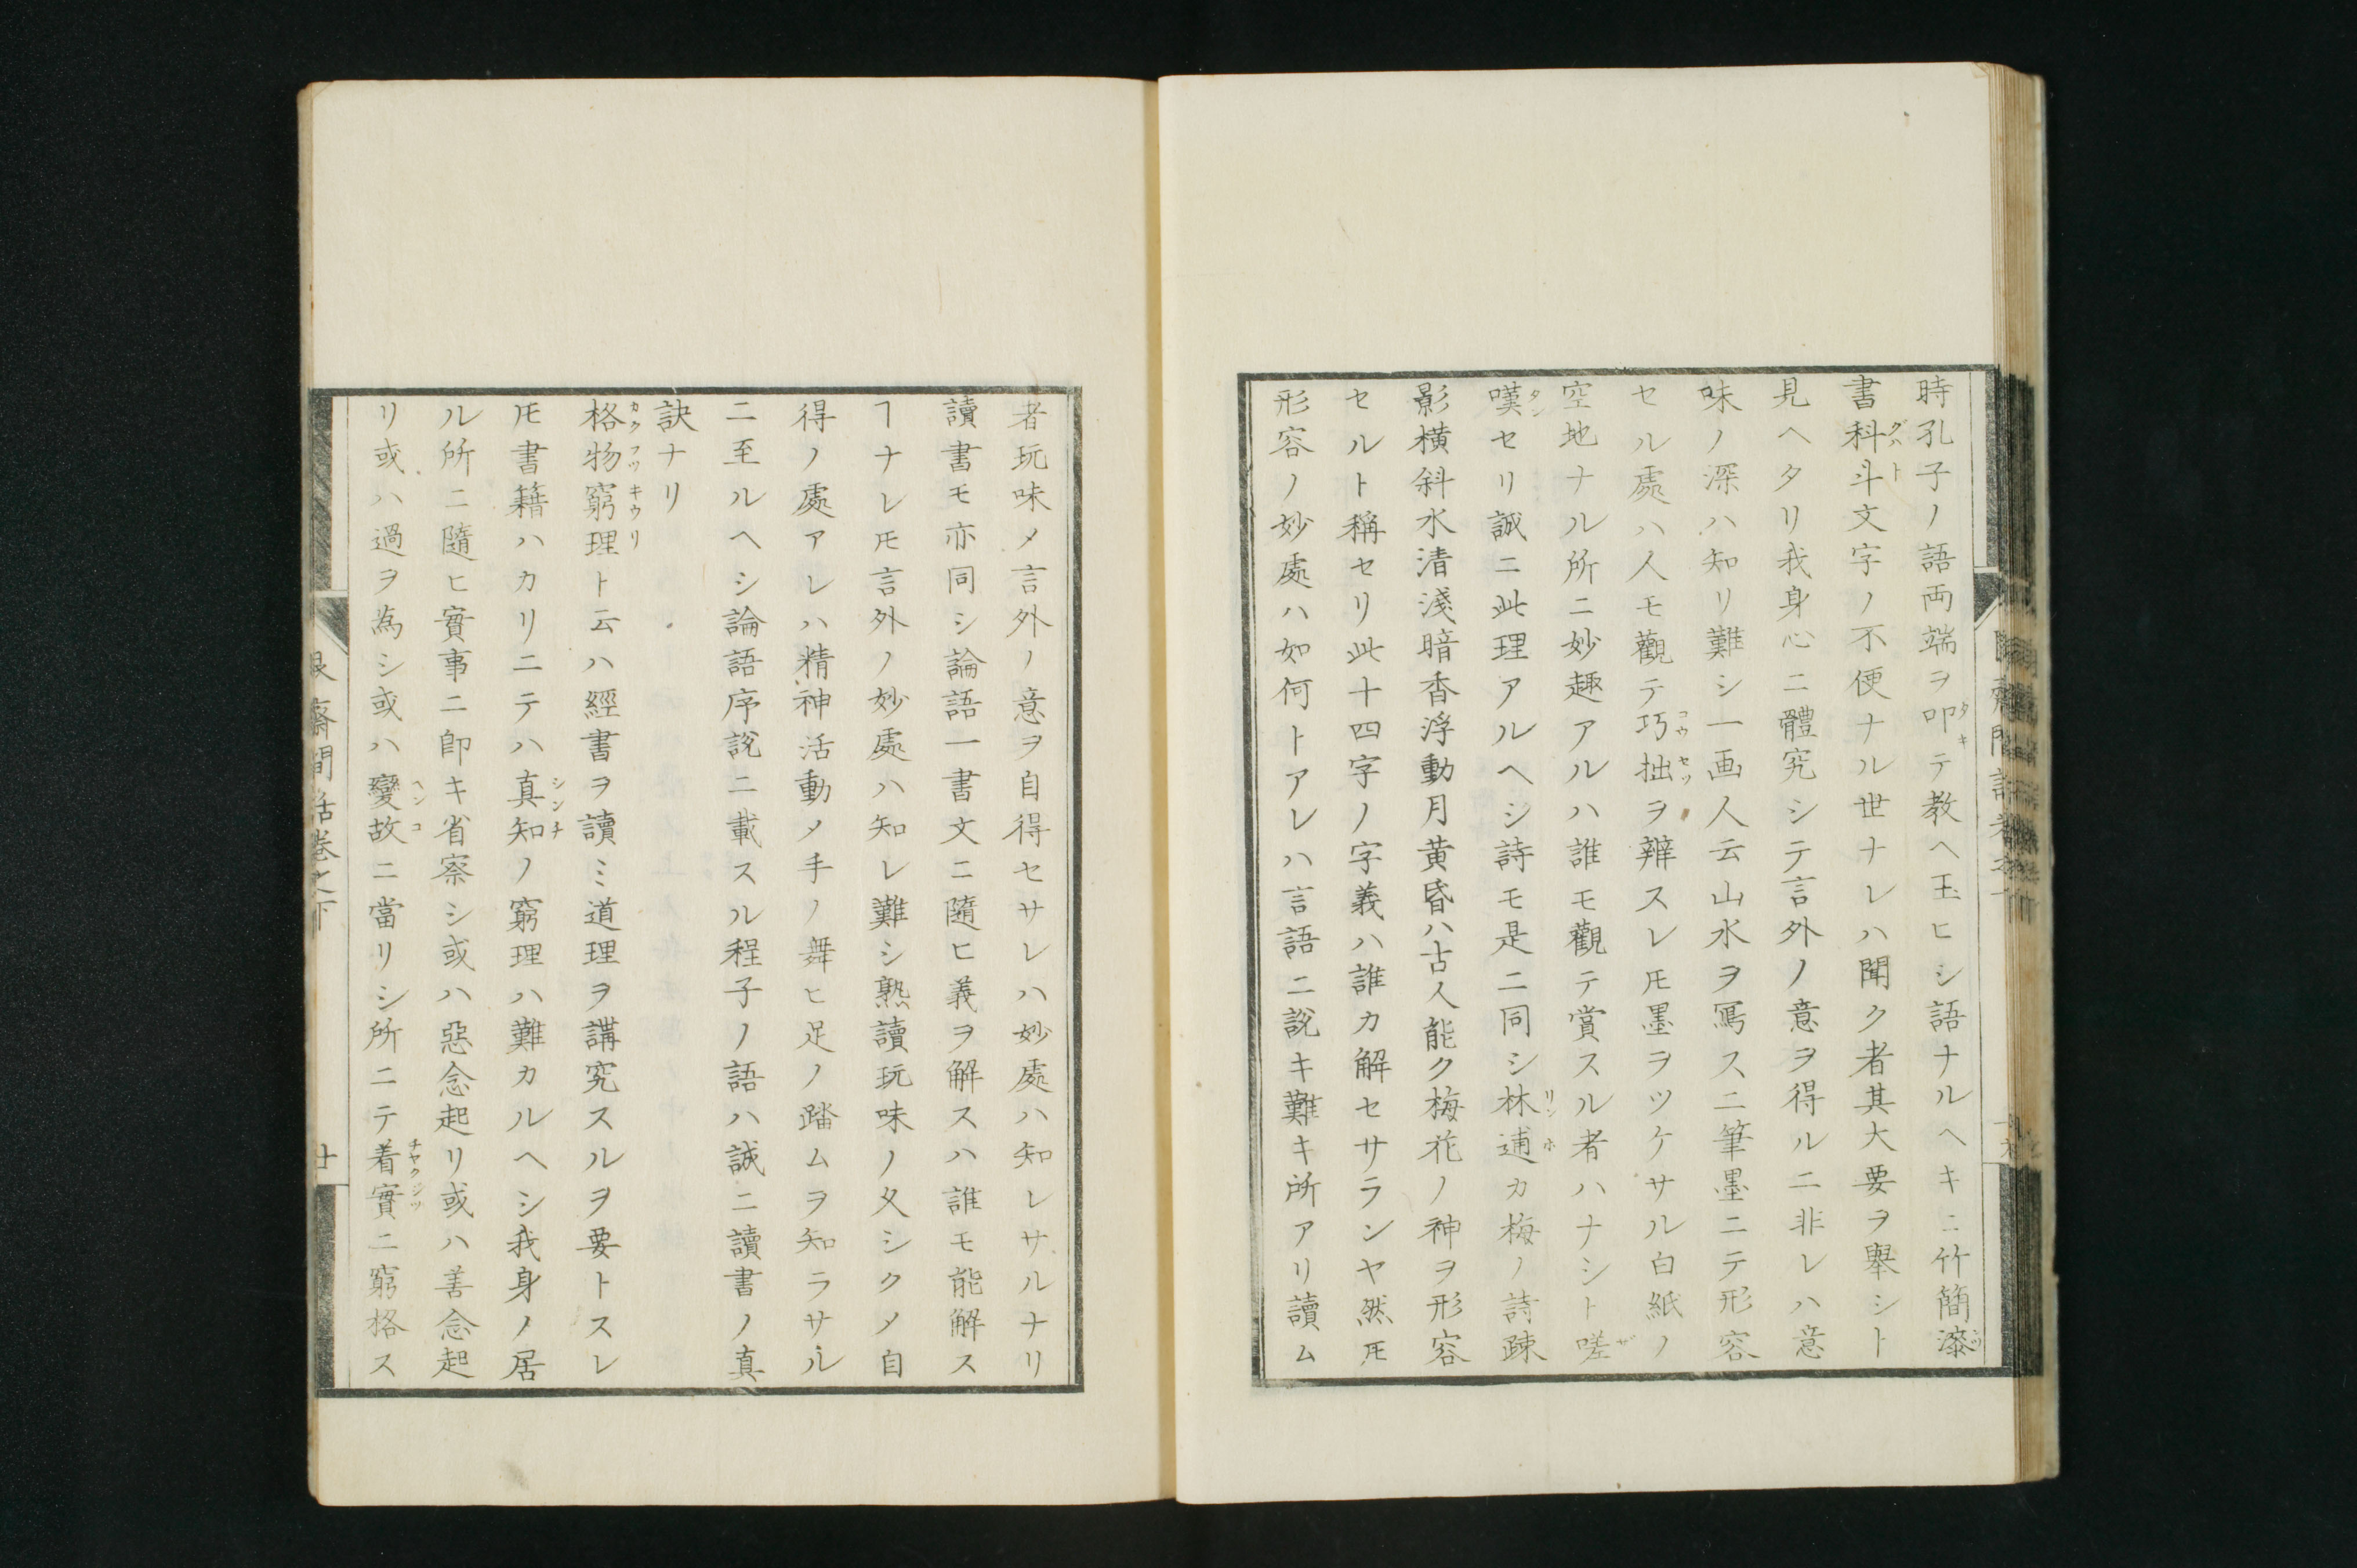 時孔子ノ語両端ヲ叩テ教ヘ玉ヒシ語ナルヘキニ竹簡漆
書科斗文字ノ不便ナル世ナレハ聞ク者其大要ヲ舉シト
見ヘタリ我身心ニ體究シテ言外ノ意ヲ得ルニ非レハ意
味ノ深ハ知リ難シ一画人云山水ヲ寫スニ筆墨ニテ形容
セル處ハ人モ觀テ巧拙ヲ辨スレ𪜈墨ヲツケサル白紙ノ
空地ナル所ニ妙趣アルハ誰モ觀テ賞スル者ハナシト嗟
嘆セリ誠ニ此理アルヘシ詩モ是ニ同シ林逋カ梅ノ詩疎
影橫斜水清淺暗香浮動月黄昏ハ古人能ク梅花ノ神ヲ形容
セルト稱セリ此十四字ノ字義ハ誰カ解セサランヤ然𪜈
形容ノ妙處ハ如何トアレハ言語ニ說キ難キ所アリ讀ム
者玩味メ言外ノ意ヲ自得セサレハ妙處ハ知レサルナリ
讀書モ亦同シ論語一書文ニ隨ヒ義ヲ解スハ誰モ能解ス
ヿナレ𪜈言外ノ妙處ハ知レ難シ熟讀玩味ノ久シクメ自
得ノ處アレハ精神活動メ手ノ舞ヒ足ノ踏ムヲ知ラサル
ニ至ルヘシ論語序說ニ載スル程子ノ語ハ誠ニ讀書ノ真
訣ナリ
格物窮理ト云ハ經書ヲ讀ミ道理ヲ講究スルヲ要トスレ
𪜈書籍ハカリニテハ真知ノ窮理ハ難カルヘシ我身ノ居
ル所ニ隨ヒ實事ニ卽キ省察シ或ハ惡念起リ或ハ善念起
リ或ハ過ヲ為シ或ハ變故ニ當リシ所ニテ着實ニ窮格ス
艮齋間話卷之下
廿